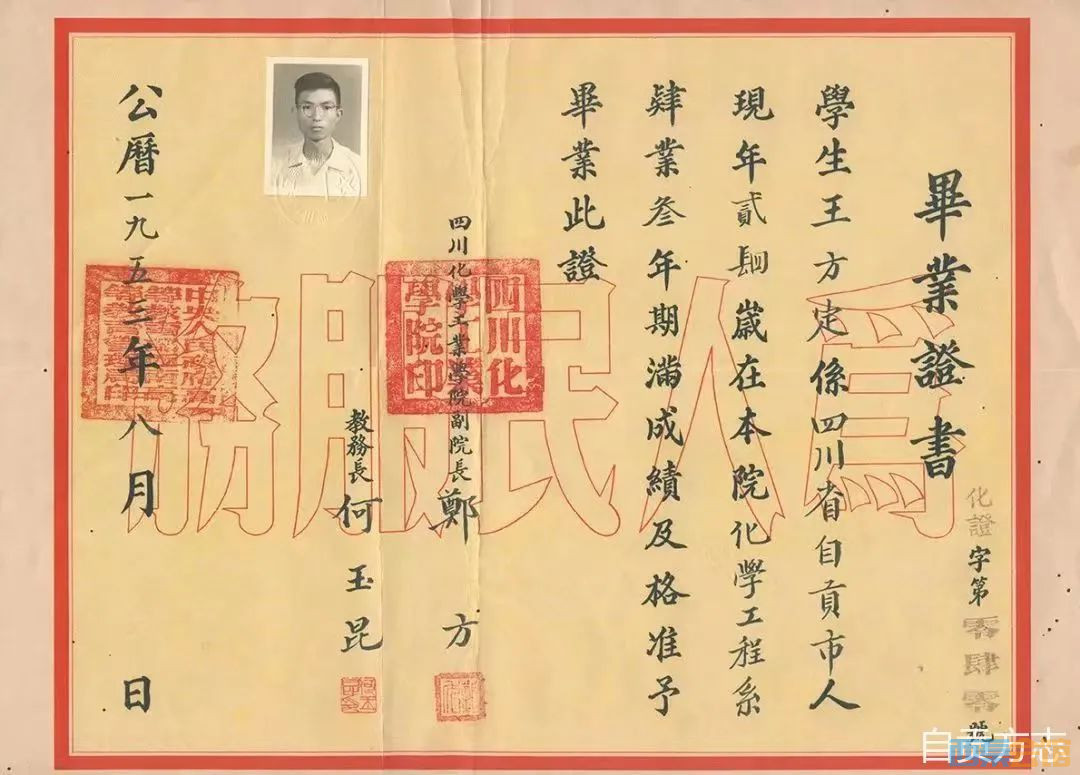 畢業證書
化證字第零肆零號
學生王方定係四川省自貢市人
現年貳肆歲在本院化學工程系
肄業叁年期滿成績及格准予
畢業此證
四川化學工業學院副院長 鄭方
教務長 何玉昆
公曆一九五三年八月 日
為人民服務
四川化學工業學院印
自贡方志